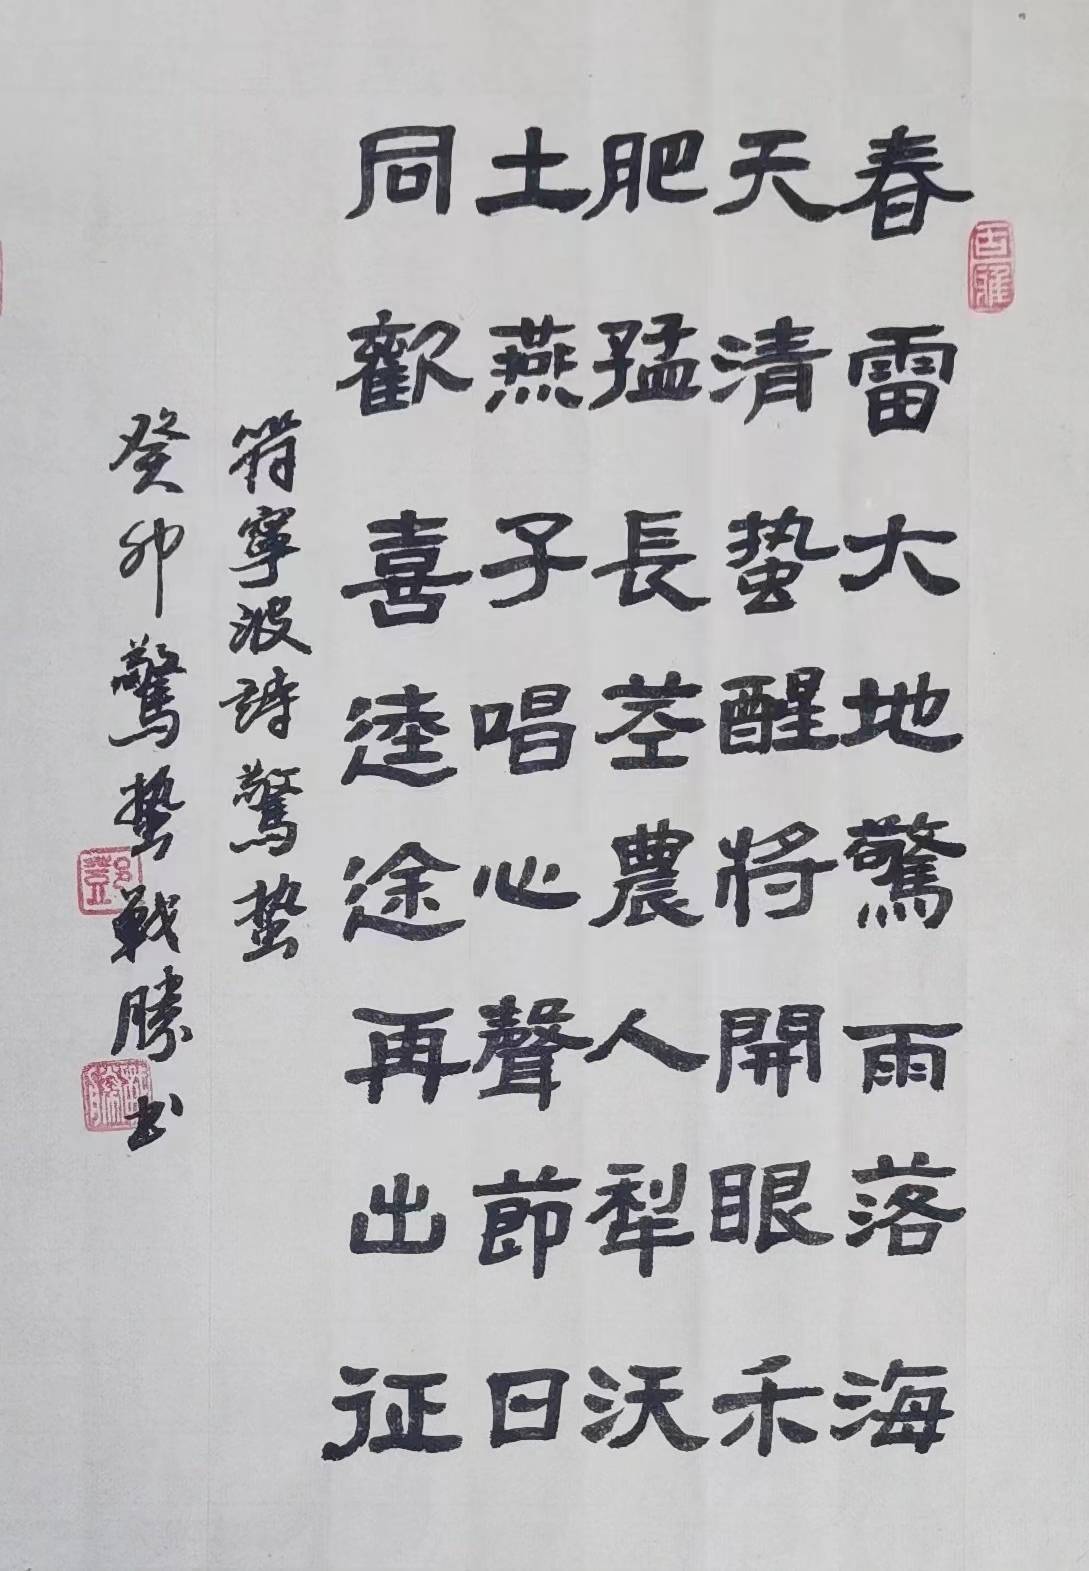 春雷大地驚雨落海
天清蟄醒將開眼禾
肥猛長莖農人犁沃
土燕子唱心聲節日
同歡喜逵途再出征
符寧波詩驚蟄
癸卯驚蟄戰勝書
古雅
鄧